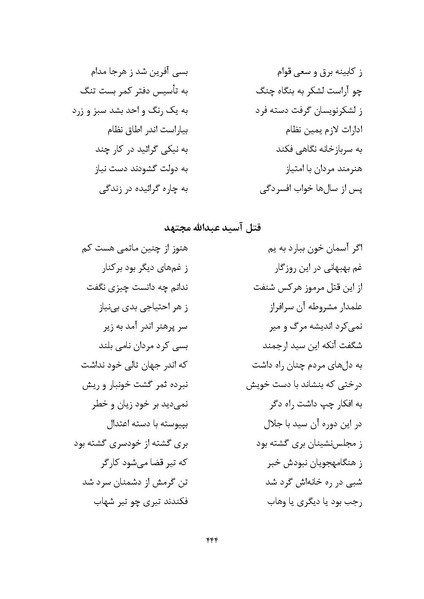 ز کابینه برق و سعی قوام بسی آفرین شد ز هرجا مدام
چو آراست لشکر به بنگاه چنگ به تأسیس دفتر کمر بست تنگ
ز لشکرنویسان گرفت دسته فرد به یک رنگ و احد بشد سبز و زرد
ادارات لازم یمین نظام بیاراست اندر اطاق نظام
به سربازخانه نگاهی فکند به نیکی گرائید در کار چند
هنرمند مردان با امتیاز به دولت گشودند دست نیاز
پس از سال‌ها خواب افسردگی به چاره گرائیده در زندگی
قتل آسید عبدالله مجتهد
اگر آسمان خون ببارد به یم هنوز از چنین ماتمی هست کم
غم بهبهانی در این روزگار ز غم‌های دیگر بود برکنار
از این قتل مرموز هرکس شنفت ندانم چه دانست چیزی نگفت
علمدار مشروطه آن سرافراز ز هر احتیاجی بدی بی‌نیاز
نمی‌کرد اندیشه مرگ و میر سر پرهنر اندر آمد به زیر
شگفت آنکه این سید ارجمند بسی کرد مردان نامی بلند
به دل‌های مردم چنان راه داشت که اندر جهان تالی خود نداشت
درختی که بنشاند با دست خویش نبرده ثمر گشت خونبار و ریش
به افکار چپ داشت راه دگر نمی‌دید بر خود زیان و خطر
در این دوره آن سید با جلال بپیوسته با دسته اعتدال
ز مجلس‌نشینان بری گشته بود بری گشته از خودسری گشته بود
ز هنگامهجویان نبودش خبر که تیر قضا می‌شود کارگر
شبی در ره خانه‌اش گرد شد تن گرمش از دشمنان سرد شد
رجب بود یا دیگری یا وهاب فکندند تیری چو تیر شهاب
۴۴۴